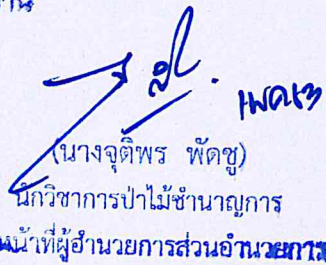 (นางจุติพร พัดชู)
นักวิชาการป่าไม้ชำนาญการ
หน้าที่ผู้อำนวยการส่วนอำนวยการ